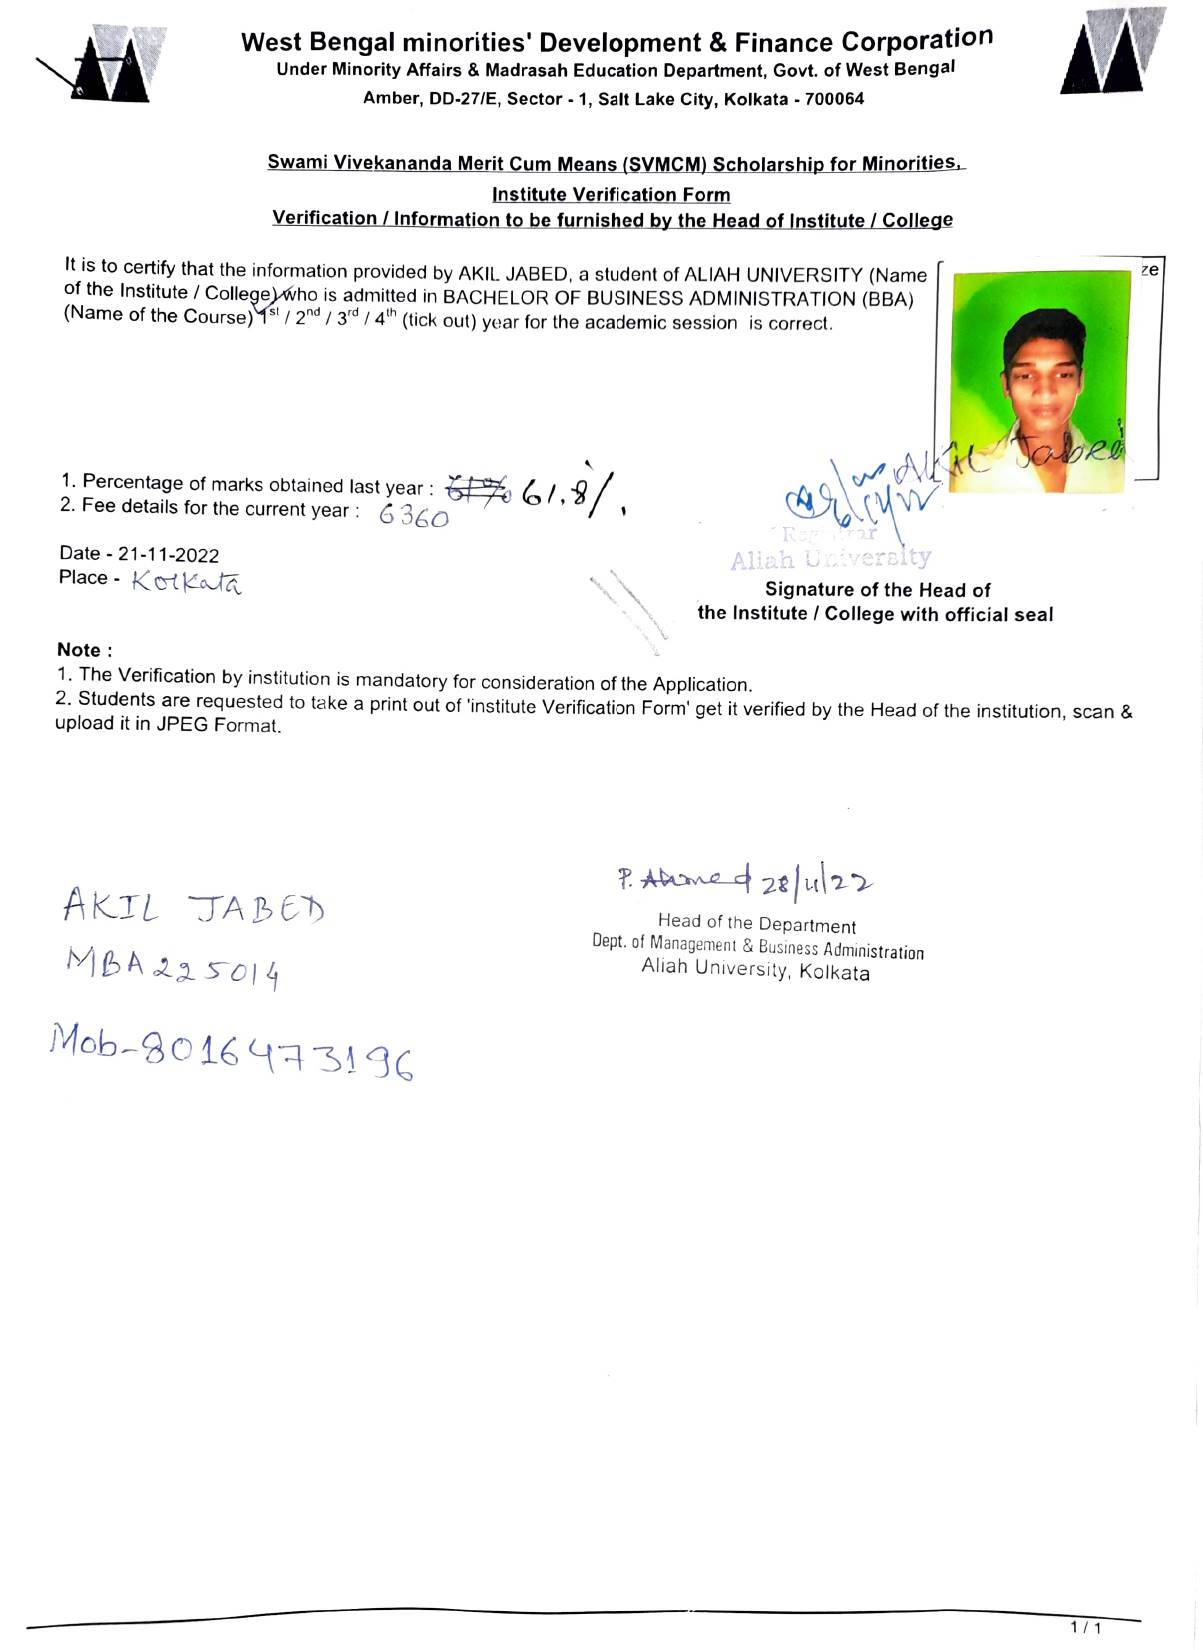 West Bengal minorities' Development & Finance Corporation
Under Minority Affairs & Madrasah Education Department, Govt. of West Bengal
Amber, DD-27/E, Sector - 1, Salt Lake City, Kolkata - 700064
Swami Vivekananda Merit Cum Means (SVMCM) Scholarship for Minorities.
Institute Verification Form
Verification / Information to be furnished by the Head of Institute / College
It is to certify that the information provided by AKIL JABED, a student of ALIAH UNIVERSITY (Name
of the Institute / College) who is admitted in BACHELOR OF BUSINESS ADMINISTRATION (BBA)
(Name of the Course) 1st / 2nd / 3rd / 4th (tick out) year for the academic session is correct.
ze
Akil Jabed
1. Percentage of marks obtained last year : 61% 61.8%.
2. Fee details for the current year : 6360
Registrar
Aliah University
Date - 21-11-2022
Place - Kolkata
Signature of the Head of
the Institute / College with official seal
Note :
1. The Verification by institution is mandatory for consideration of the Application.
2. Students are requested to take a print out of 'institute Verification Form' get it verified by the Head of the institution, scan &
upload it in JPEG Format.
P. Ahmed 28/11/22
Head of the Department
Dept. of Management & Business Administration
Aliah University, Kolkata
AKIL JABED
MBA225014
Mob-8016473196
1 / 1